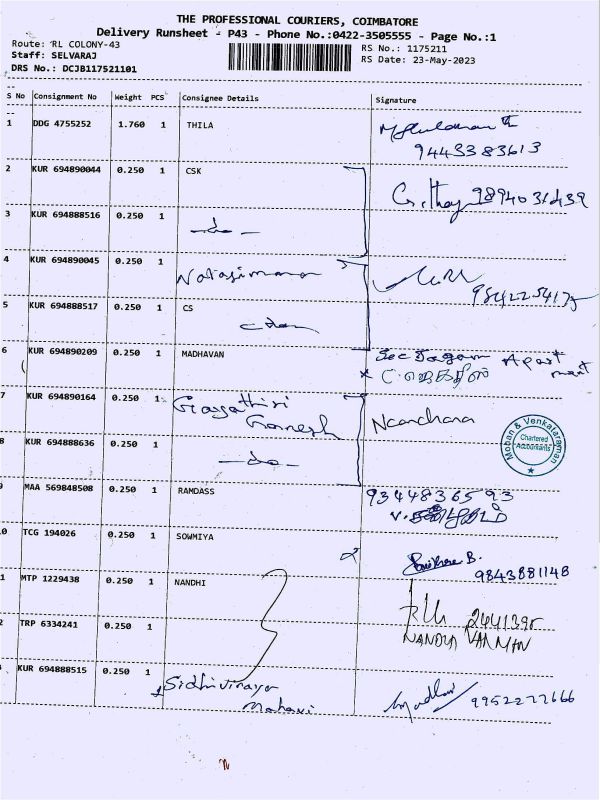 THE PROFESSIONAL COURIERS, COIMBATORE
Delivery Runsheet - P43 - Phone No.:0422-3505555 - Page No.:1
Route: RL COLONY-43
RS No.: 1175211
Staff: SELVARAJ
RS Date: 23-May-2023
DRS No.: DCJB117521101
S No Consignment No Weight PCS Consignee Details Signature
1 DDG 4755252 1.760 1 THILA
9443383613
2 KUR 694890044 0.250 1 CSK
3 KUR 694888516 0.250 1
-do-
4 KUR 694890045 0.250 1
5 KUR 694888517 0.250 1 CS
6 KUR 694890209 0.250 1 MADHAVAN
Apart
ment
7 KUR 694890164 0.250 1 Gayathiri
Ganesh
Kanchana
Mohan & Venkataraman
Chartered
Accountants
8 KUR 694888636 0.250 1
-do-
9 MAA 569848508 0.250 1 RAMDASS
9344836593
0 TCG 194026 0.250 1 SOWMIYA
B.
9843881148
1 MTP 1229438 0.250 1 NANDHI
2441395
2 TRP 6334241 0.250 1
KUR 694888515 0.250 1
Sidhivinaya
9952277666